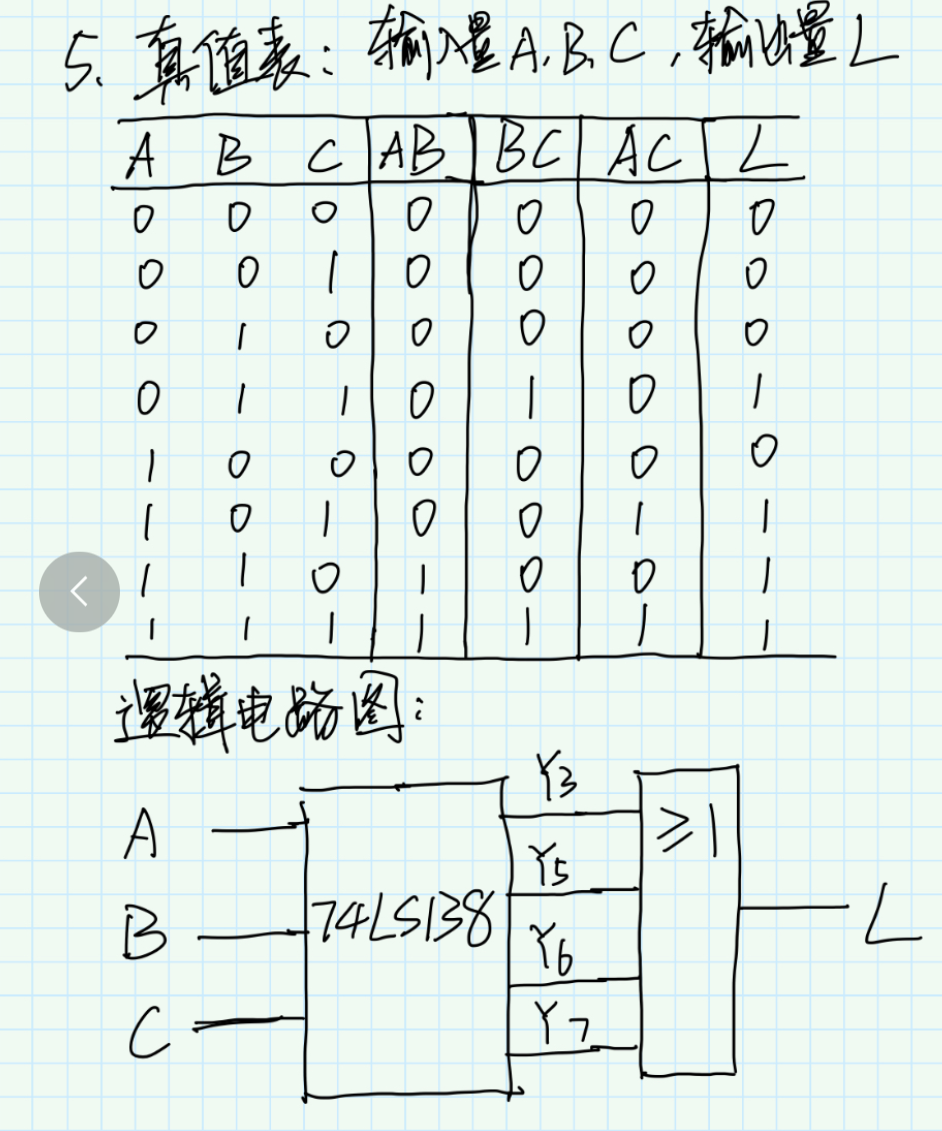 5. 真值表: 输入量 A, B, C, 输出量 L
A B C AB BC AC L
0 0 0 0 0 0 0
0 0 1 0 0 0 0
0 1 0 0 0 0 0
0 1 1 0 1 0 1
1 0 0 0 0 0 0
1 0 1 0 0 1 1
1 1 0 1 0 0 1
1 1 1 1 1 1 1
逻辑电路图:
A
B
C
74LS138
Y3
Y5
Y6
Y7
≥1
L